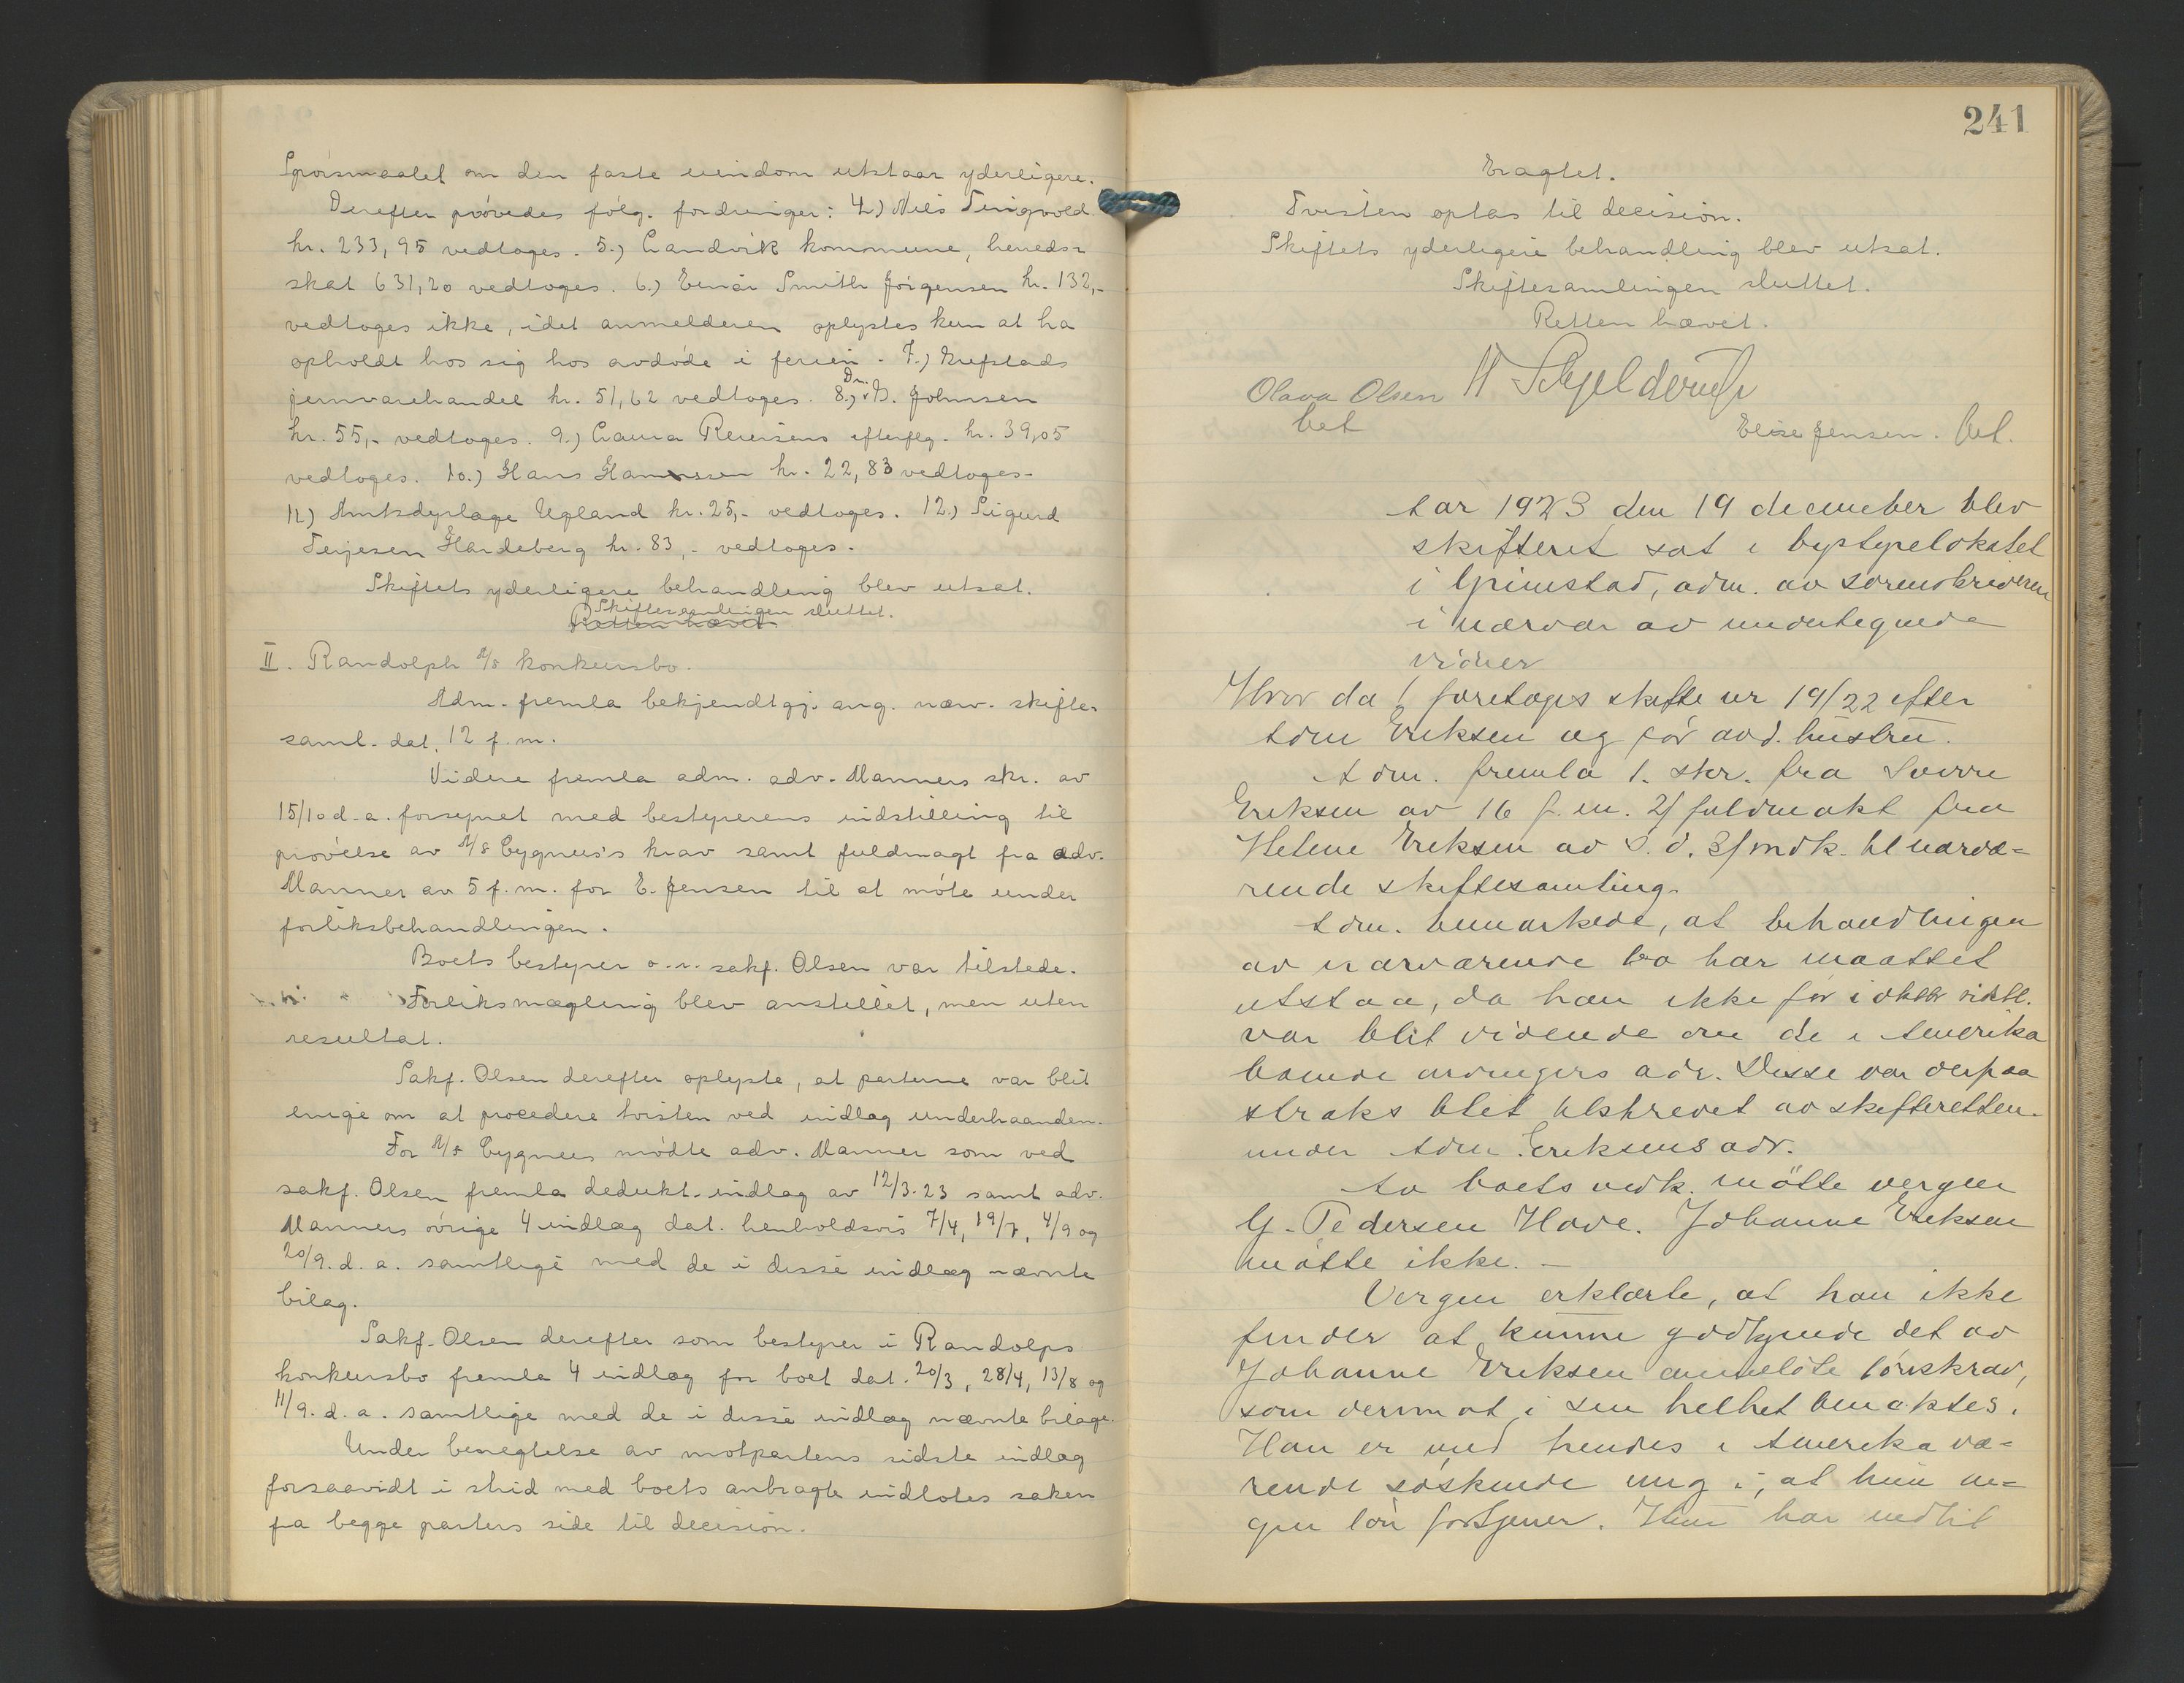 Spörsmaalet om den faste eiendom utstaar yderligere.
Derefter prövedes fölg. fordringer: 4.) Nils Terigvold
kr. 233,95 vedtoges. 5.) Landvik kommune, hereds-
skat 631,20 vedtoges. 6.) Einar Smith Jörgensen kr. 132,-
vedtoges ikke, idet anmelderen oplystes kun at ha
opholdt hos sig hos avdöde i ferien. 7.) Grefstads
jernvarehandel kr. 51,62 vedtoges. 8.) Dr. B. Johnsen
kr. 55,- vedtoges. 9.) Laura Reiersens efterflg. kr. 39,05
vedtoges. 10.) Hans Hanssen kr. 22,83 vedtoges.
11.) Amtsdyrlæge Ugland kr. 25,- vedtoges. 12.) Sigurd
Terjesen Hardeberg kr. 83,- vedtoges.
Skiftets yderligere behandling blev utsat.
Skiftesamlingen sluttet.
Retten hævet
II. Randolph A/S konkursbo.
Adm. fremla bekjendtgj. ang. nærv. skifte-
saml. dat. 12 f.m.
Videre fremla adm. adv. Manners skr. av
15/10 d.a. forsynet med bestyrerens indstilling til
prövelse av A/S Cygnus's krav samt fuldmagt fra adv.
Manner av 5 f.m. for E. Jensen til at möte under
forliksbehandlingen.
Boets bestyrer o.r. sakf. Olsen var tilstede.
Forliksmægling blev anstillet, men uten
resultat.
Sakf. Olsen derefter oplyste, at parterne var blit
enige om at procedere tvisten ved indlæg underhaanden.
For A/S Cygnus mödte adv. Manner som ved
sakf. Olsen fremla dedukt. indlæg av 12/3.23 samt adv.
Manners övrige 4 indlæg dat. henholdsvis 7/4, 19/7, 4/9 og
20/9. d.a. samtlige med de i disse indlæg nævnte
bilag.
Sakf. Olsen derefter som bestyrer i Randolps
konkursbo fremla 4 indlæg for boet dat. 20/3, 28/4, 13/8 og
11/9. d.a. samtlige med de i disse indlæg nævnte bilage.
Under benegtelse av motpartens sidste indlæg
forsaavidt i strid med boets anbragte indlotes saken
fra begge parters side til decision.
241
Eragtet.
Tvisten optas til decision.
Skiftets yderligere behandling blev utsat.
Skiftesamlingen sluttet.
Retten hævet.
Olava Olsen H Schjelderup
bet
Elise Jensen. bet.
Aar 1923 den 19 december blev
skifteret sat i bystyrelokalet
i Grimstad, adm. av sorenskriveren
i nærvær av undertegnede
vidner
Hvor da foretoges skifte nr 19/22 efter
Adm. fremla 1. skr. fra Sverre
Eriksen av 16 f.m. 2/ fuldmakt fra
Helene Eriksen av s.d. 3/ indk. til nærvæ=
rende skiftesamling.
Adm. bemærkede, at behandlingen
av nærværende bo har maattet
utstaa, da han ikke før i oktbr sidstl.
var blit vidende om de i Amerika
boende arvingers adr. Disse var derpaa
straks blit tilskrevet av skifteretten
under Eriksens adr.
Av boets vedk. mötte vergen
G. Pedersen Hove. Johanne Eriksen
mötte ikke. —
Vergen erklærte, at han ikke
finder at kunne godkjende det av
Johanne Eriksen anmeldte lönskrav,
som derimot i sin helhet benektes.
Han er med hendes i Amerika væ=
rende söskende enig i, at hun in=
gen lön fortjener. Hun har indtil